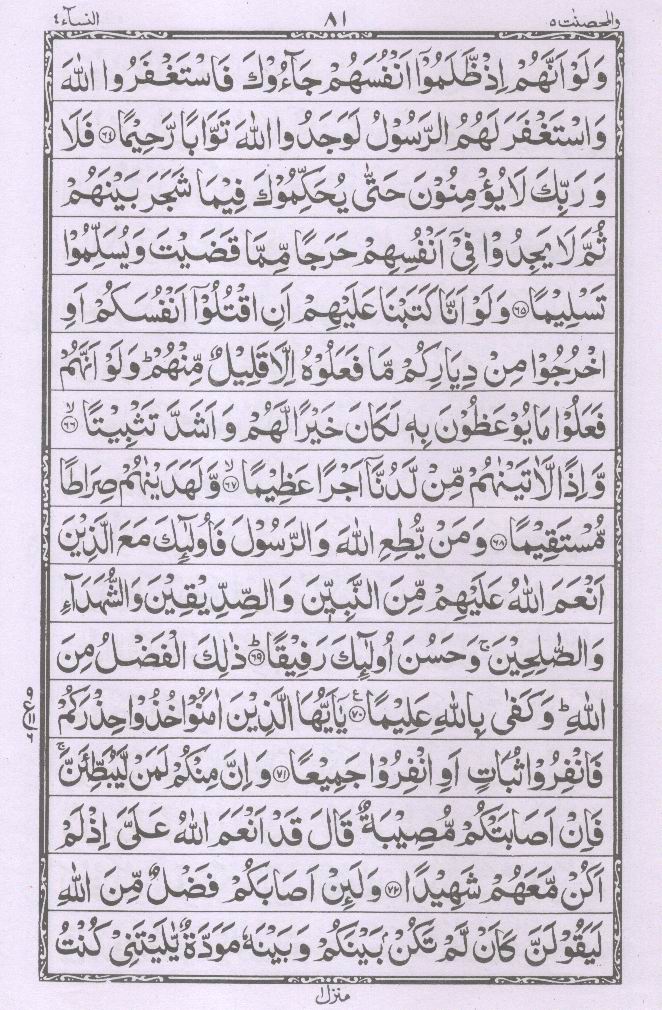 والمحصنٰت ٥ ٨١ النسآء ٤
وَلَوْ اَنَّهُمْ اِذْ ظَّلَمُوْۤا اَنْفُسَهُمْ جَآءُوْكَ فَاسْتَغْفَرُوا اللّٰهَ
وَاسْتَغْفَرَ لَهُمُ الرَّسُوْلُ لَوَجَدُوا اللّٰهَ تَوَّابًا رَّحِيْمًا ﴿٦٤﴾ فَلَا
وَ رَبِّكَ لَا يُؤْمِنُوْنَ حَتّٰى يُحَكِّمُوْكَ فِيْمَا شَجَرَ بَيْنَهُمْ
ثُمَّ لَا يَجِدُوْا فِيْۤ اَنْفُسِهِمْ حَرَجًا مِّمَّا قَضَيْتَ وَ يُسَلِّمُوْا
تَسْلِيْمًا ﴿٦٥﴾ وَلَوْ اَنَّا كَتَبْنَا عَلَيْهِمْ اَنِ اقْتُلُوْۤا اَنْفُسَكُمْ اَوِ
اخْرُجُوْا مِنْ دِيَارِكُمْ مَّا فَعَلُوْهُ اِلَّا قَلِيْلٌ مِّنْهُمْ ؕ وَلَوْ اَنَّهُمْ
فَعَلُوْا مَا يُوْعَظُوْنَ بِهٖ لَكَانَ خَيْرًا لَّهُمْ وَ اَشَدَّ تَثْبِيْتًا ﴿٦٦﴾ ۙ
وَّ اِذًا لَّاٰتَيْنٰهُمْ مِّنْ لَّدُنَّاۤ اَجْرًا عَظِيْمًا ﴿٦٧﴾ ۙ وَّ لَهَدَيْنٰهُمْ صِرَاطًا
مُّسْتَقِيْمًا ﴿٦٨﴾ وَ مَنْ يُّطِعِ اللّٰهَ وَ الرَّسُوْلَ فَاُولٰٓئِكَ مَعَ الَّذِيْنَ
اَنْعَمَ اللّٰهُ عَلَيْهِمْ مِّنَ النَّبِيّٖنَ وَ الصِّدِّيْقِيْنَ وَ الشُّهَدَآءِ
وَ الصّٰلِحِيْنَ ۚ وَ حَسُنَ اُولٰٓئِكَ رَفِيْقًا ﴿٦٩﴾ ؕ ذٰلِكَ الْفَضْلُ مِنَ
اللّٰهِ ؕ وَ كَفٰى بِاللّٰهِ عَلِيْمًا ﴿٧٠﴾ ع يٰۤاَيُّهَا الَّذِيْنَ اٰمَنُوْا خُذُوْا حِذْرَكُمْ
فَانْفِرُوْا ثُبَاتٍ اَوِ انْفِرُوْا جَمِيْعًا ﴿٧١﴾ وَ اِنَّ مِنْكُمْ لَمَنْ لَّيُبَطِّئَنَّ ۚ
فَاِنْ اَصَابَتْكُمْ مُّصِيْبَةٌ قَالَ قَدْ اَنْعَمَ اللّٰهُ عَلَيَّ اِذْ لَمْ
اَكُنْ مَّعَهُمْ شَهِيْدًا ﴿٧٢﴾ وَ لَئِنْ اَصَابَكُمْ فَضْلٌ مِّنَ اللّٰهِ
لَيَقُوْلَنَّ كَاَنْ لَّمْ تَكُنْ ۢ بَيْنَكُمْ وَ بَيْنَهٗ مَوَدَّةٌ يّٰلَيْتَنِيْ كُنْتُ
منزل ١